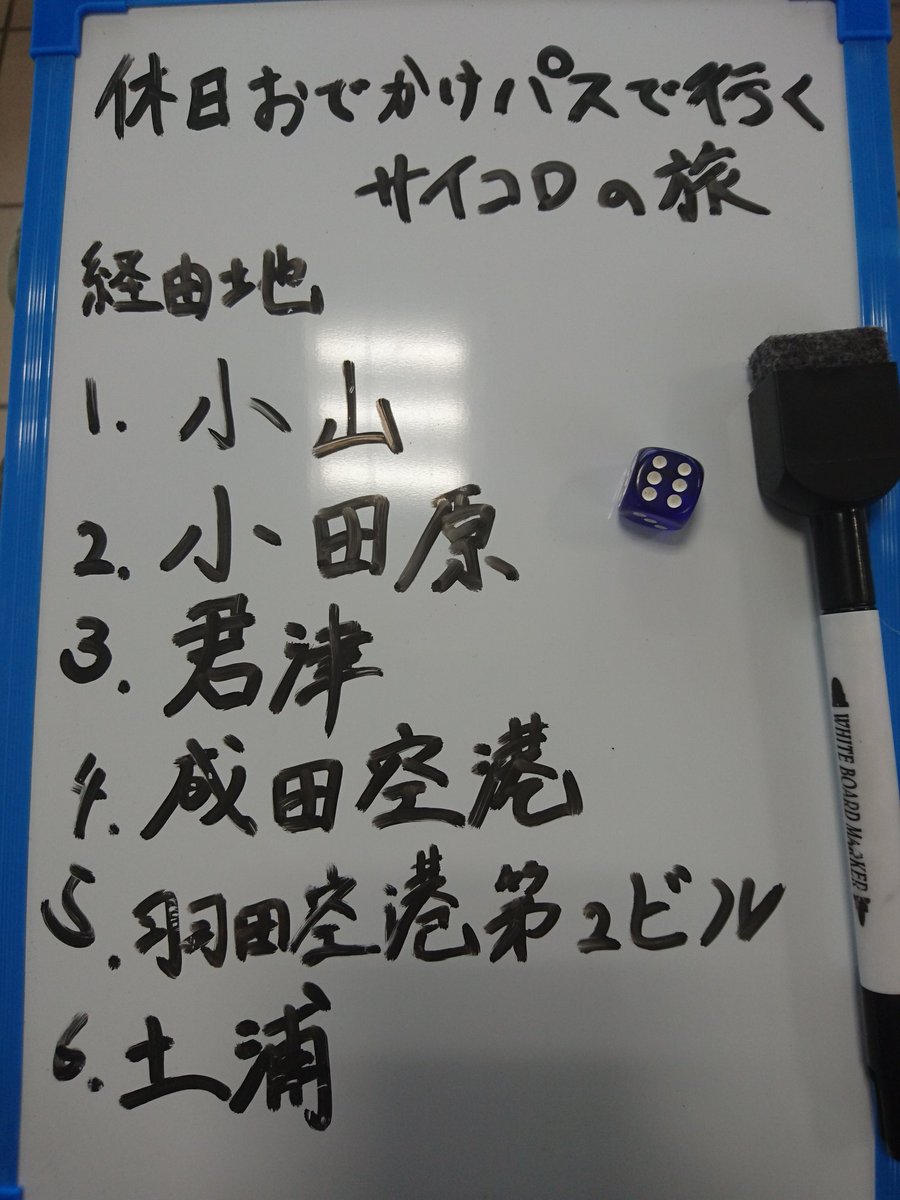 休日おでかけパスで行く
サイコロの旅
経由地
1. 小山
2. 小田原
3. 君津
4. 成田空港
5. 羽田空港第2ビル
6. 土浦
WHITE BOARD MARKER